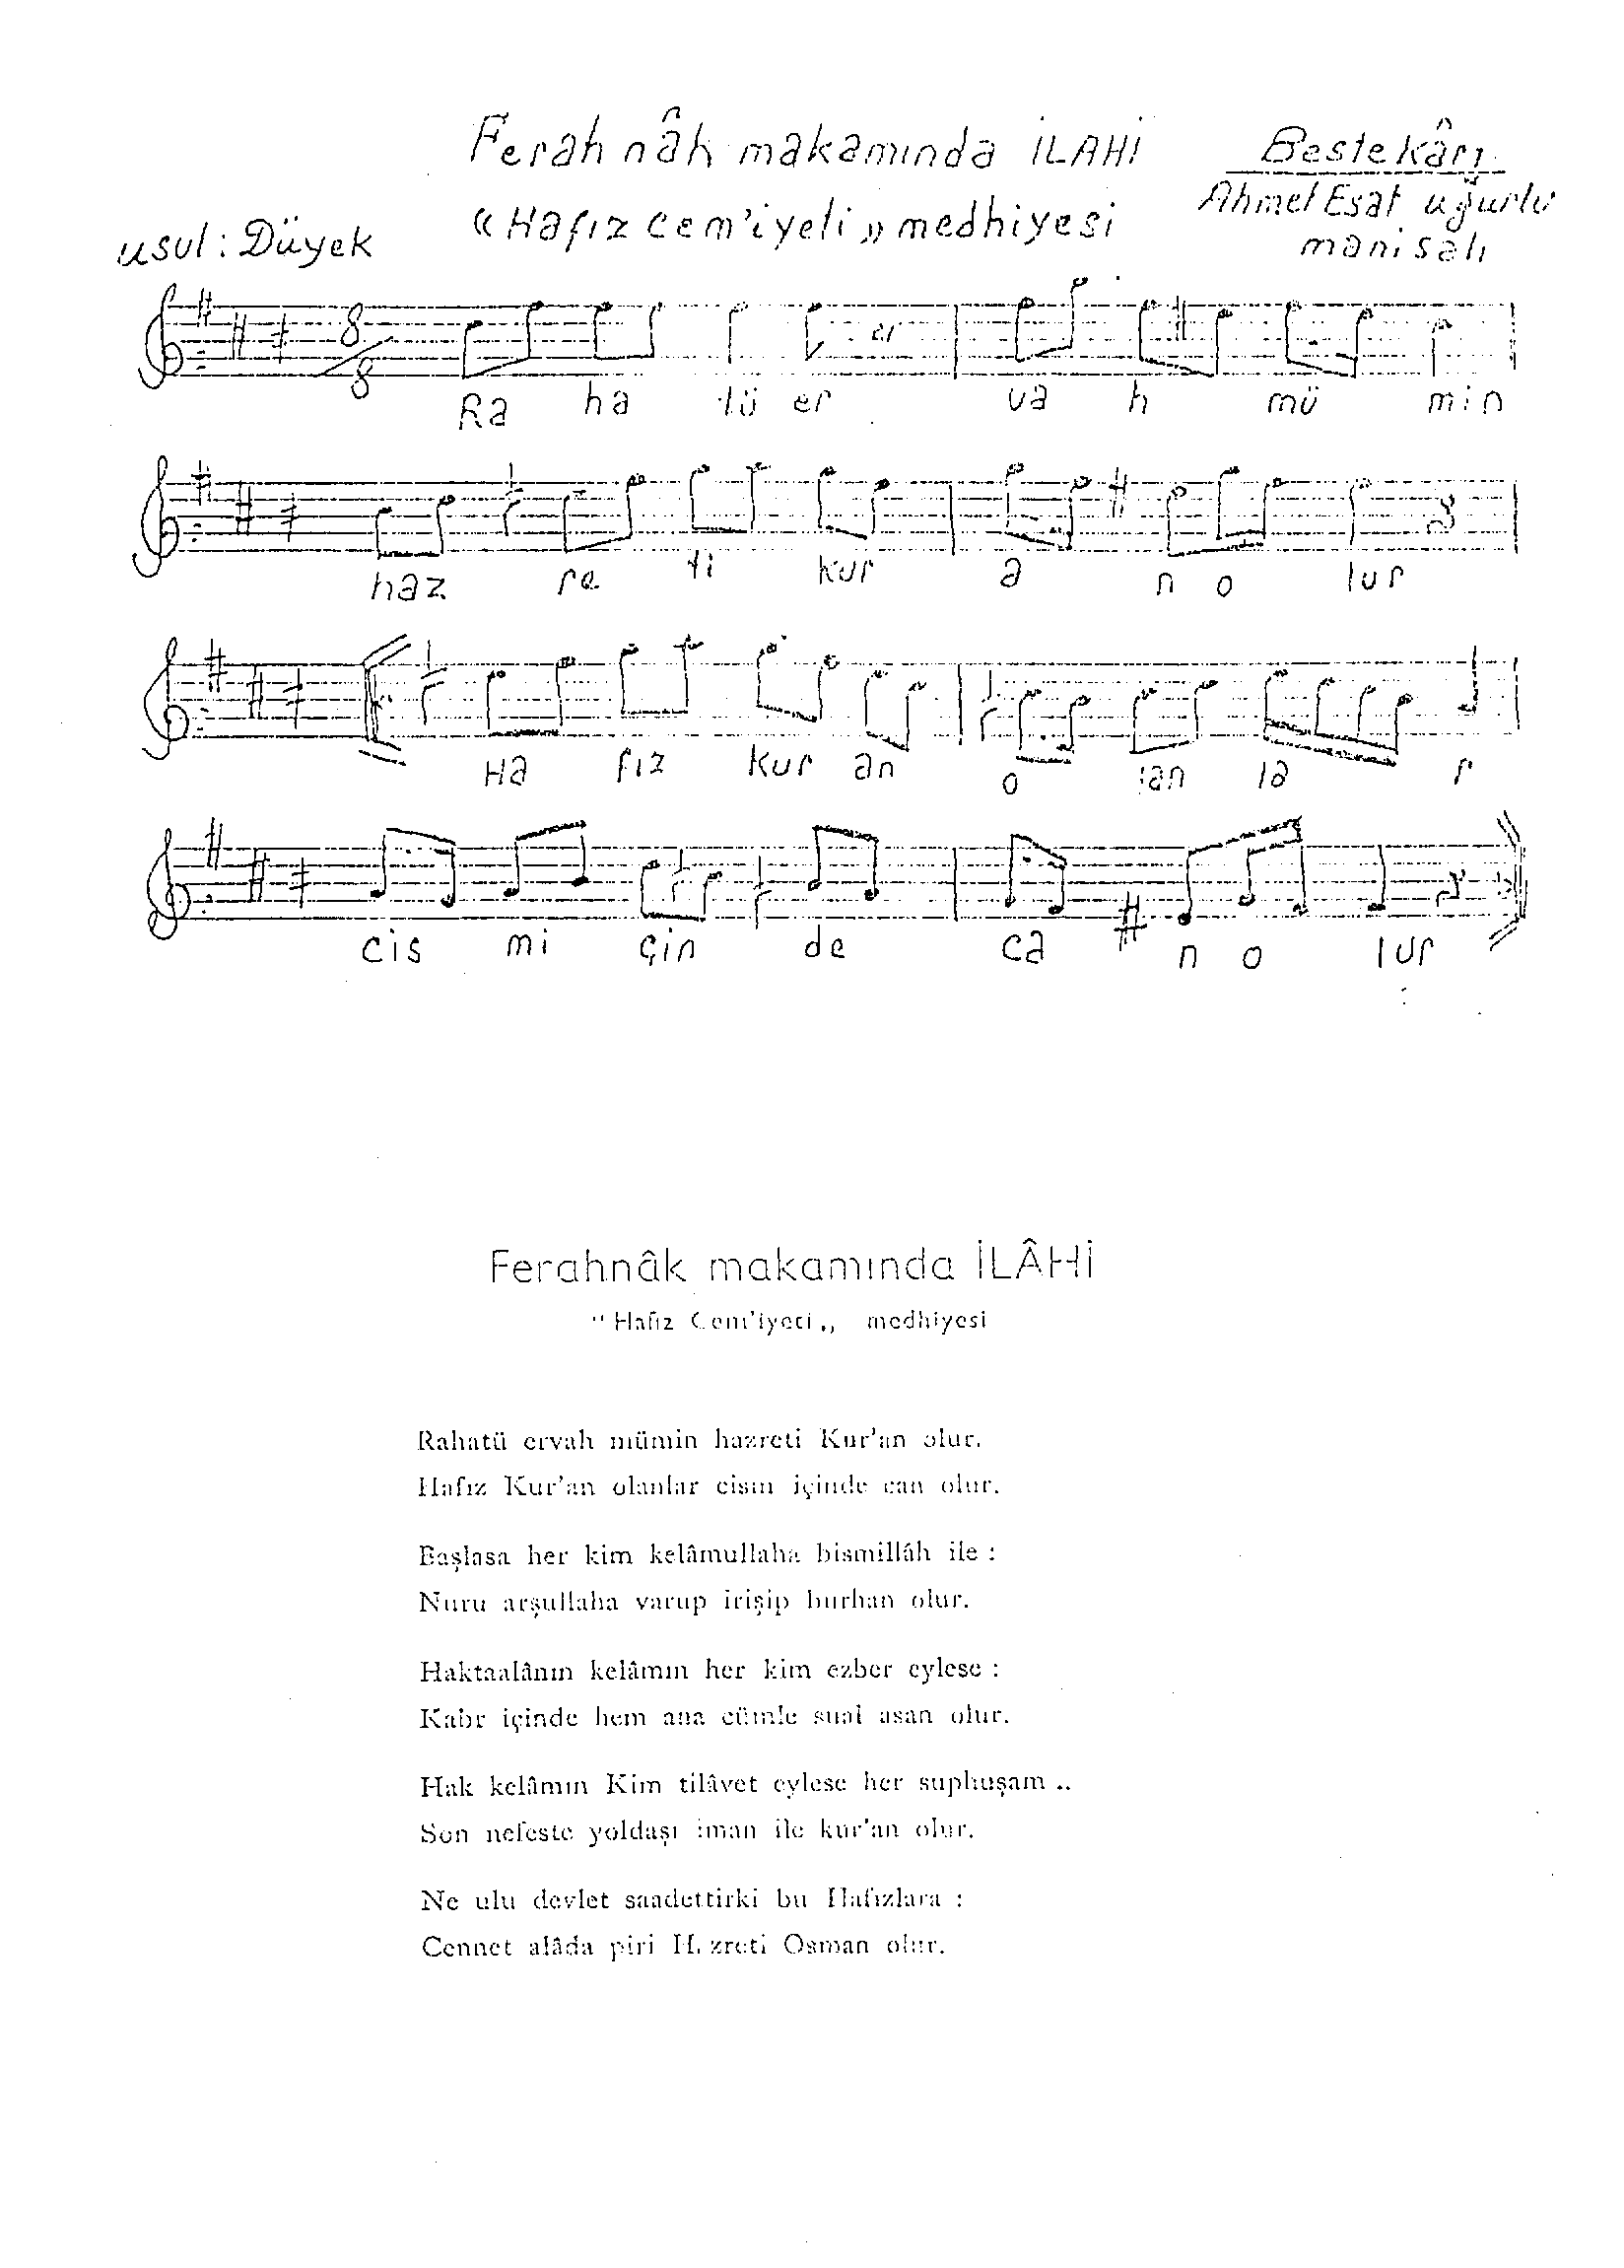 Ferahnâk makamında İLAHİ
Bestekârı
"Hafız cem'iyeti" medhiyesi
Ahmet Esat uğurlu
manisalı
usul: Düyek
8
8
Ra ha tü er va h mü min
haz re ti kur a n o lur
Ha fız kur an o lan la r
cis mi çin de ca n o lur
Ferahnâk makamında İLÂHİ
"Hafız Cem'iyeti„ medhiyesi
Rahatü ervah mümin hazreti Kur'an olur.
Hafız Kur'an olanlar cism içinde can olur.
Başlasa her kim kelâmullaha bismillâh ile :
Nuru arşullaha varup irişip burhan olur.
Haktaalânın kelâmın her kim ezber eylese :
Kabr içinde hem ana cümle sual asan olur.
Hak kelâmın Kim tilâvet eylese her suphuşam ..
Son nefeste yoldaşı iman ile kur'an olur.
Ne ulu devlet saadettirki bu Hafızlara :
Cennet alâda piri Hazreti Osman olur.